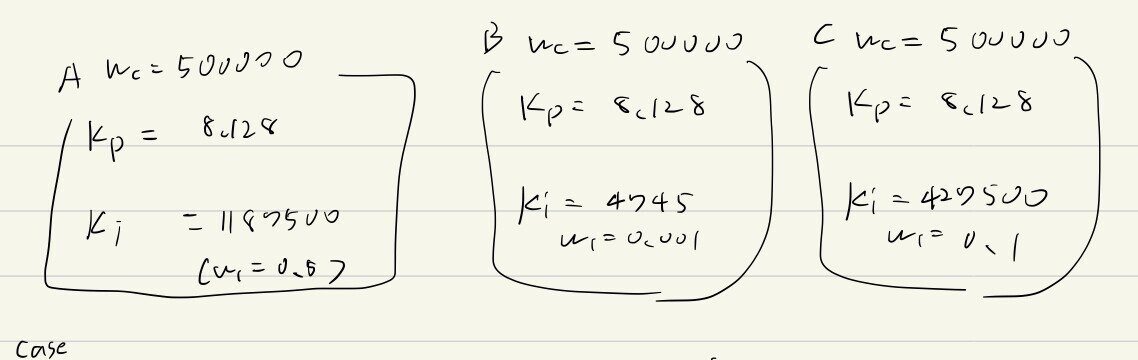 A wc = 500000
Kp = 8.128
Ki = 1187500
(wi = 0.5)
B wc = 500000
Kp = 8.128
Ki = 4745
wi = 0.001
C wc = 500000
Kp = 8.128
Ki = 427500
wi = 0.1
Case